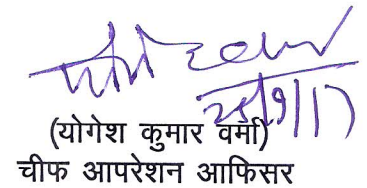 25/9/17
(योगेश कुमार वर्मा)
चीफ आपरेशन आफिसर